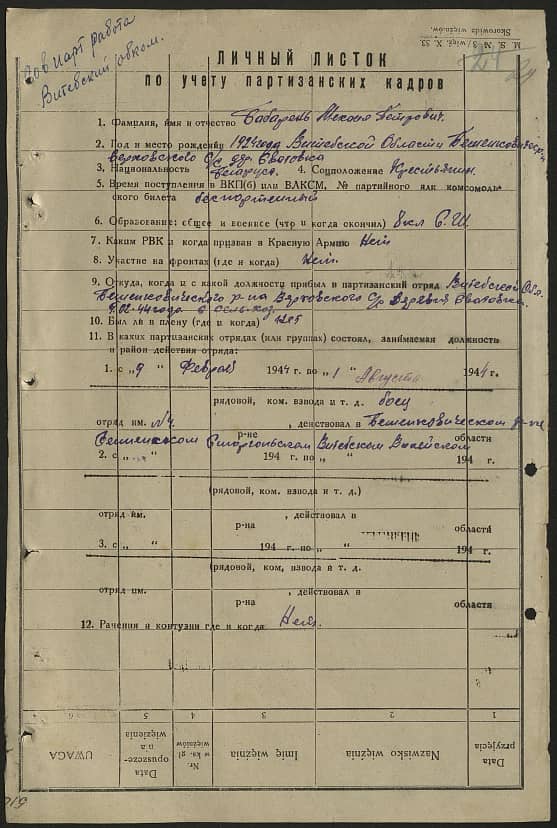 Сов парт работа
Витебский обком.
M. S. № 3/więź. X. 53.
Skorowidz więźniów.
24
ЛИЧНЫЙ ЛИСТОК
по учету партизанских кадров
1. Фамилия, имя и отчество Бабарень Петрович.
2. Год и место рождения 1924 года Витебской Области Бешенковичск р-н
Верховского С/С дер. Свотовка
3. Национальность Беларус. 4. Соцположение Крестьянин.
5. Время поступления в ВКП(б) или ВЛКСМ, № партийного или комсомоль-
ского билета беспортейный
6. Образование: общее и военное (что и когда окончил) 8 кл С.Ш.
7. Каким РВК и когда призван в Красную Армию Нет
8. Участие на фронтах (где и когда) Нет.
9. Откуда, когда и с какой должности прибыл в партизанский отряд Витебской Обл.
Бешенковичского р-на Верховского С/С Деревня Свотовка.
9.02-44 года в сель.хоз.
10. Был ли в плену (где и когда) нет
11. В каких партизанских отрядах (или группах) состоял, занимаемая должность
и район действия отряда:
1. с „9 " Феврал 1944 г. по „1 " Августа 1944 г.
рядовой, ком. взвода и т. д. боец
отряд им. №4. , действовал в Бешенковическом р-не
р-не области
Витебском Вилейском
2. с „ " 194 г. по „ " 194 г.
(рядовой, ком. взвода и т. д.)
отряд им. , действовал в
р-на области
3. с „ " 194 г. по „ " 194 г.
(рядовой, ком. взвода и т. д.
отряд им. , действовал в
р-на области
12. Ранения и контузии где и когда Нет.
1 2 3 4 5 6
Data przyjęcia
Nazwisko więźnia
Imię więźnia
Nr. w ks. gł. więźniów
Data opuszczenia więzienia
UWAGA